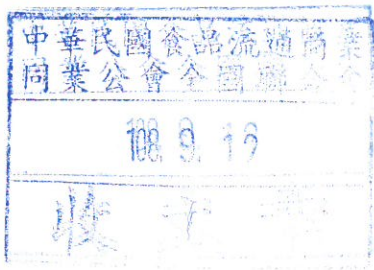 中華民國食品流通商業
同業公會全國聯合會
108. 9. 19
收文章